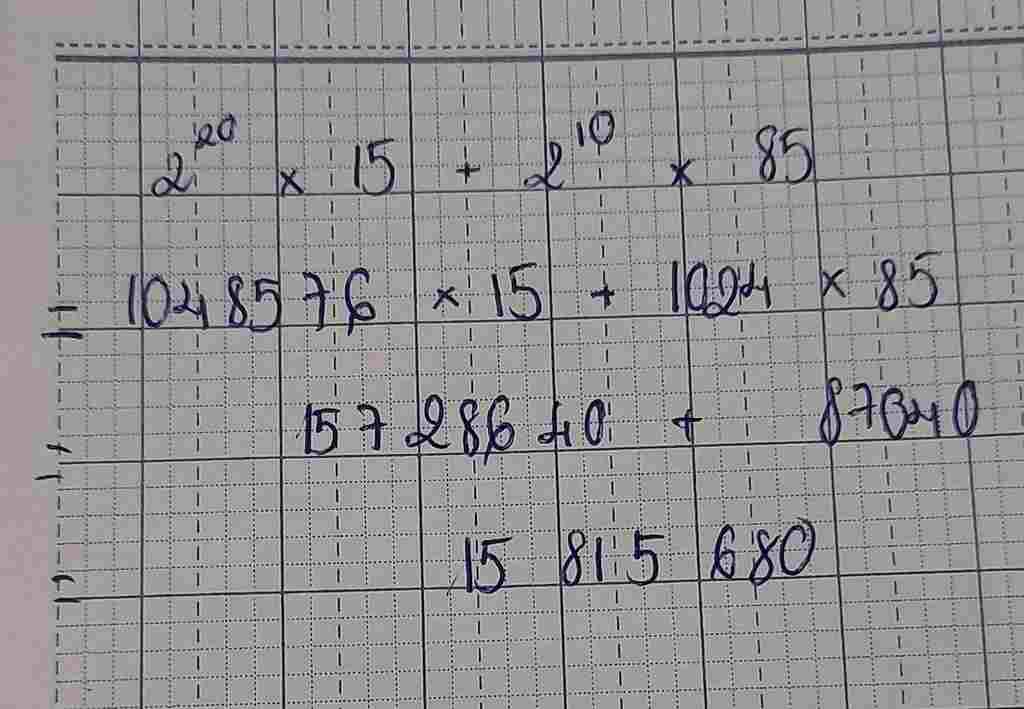 2²⁰ × 15 + 2¹⁰ × 85
= 1048576 × 15 + 1024 × 85
= 15728640 + 87040
= 15 815 680